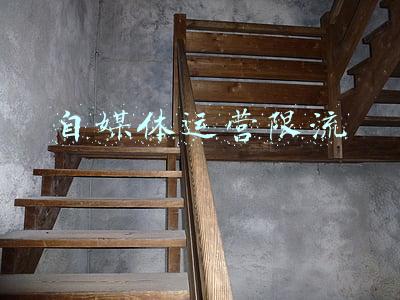 自媒体运营限流